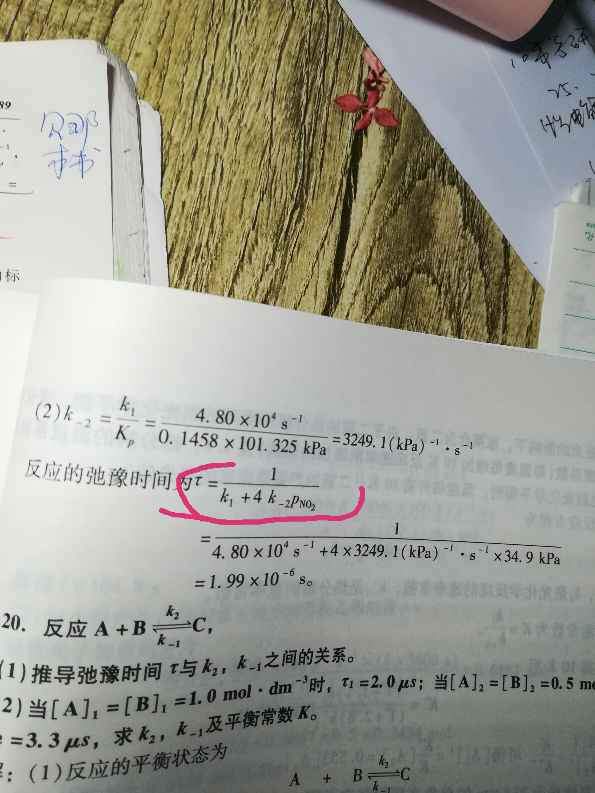 89
(2) k₋₂ = k₁/Kₚ = 4.80×10⁴ s⁻¹ / 0.1458×101.325 kPa = 3249.1(kPa)⁻¹·s⁻¹
反应的弛豫时间为τ = 1 / k₁+4 k₋₂p_NO₂
= 1 / 4.80×10⁴ s⁻¹+4×3249.1(kPa)⁻¹·s⁻¹×34.9 kPa
=1.99×10⁻⁶ s。
20. 反应 A+B ⇌ C, k₂ k₋₁
(1)推导弛豫时间 τ与k₂,k₋₁之间的关系。
2)当[A]₁=[B]₁=1.0 mol·dm⁻³时,τ₁=2.0μs;当[A]₂=[B]₂=0.5 m
=3.3μs,求k₂,k₋₁及平衡常数K。
:(1)反应的平衡状态为
A + B ⇌ C k₂ k₋₁